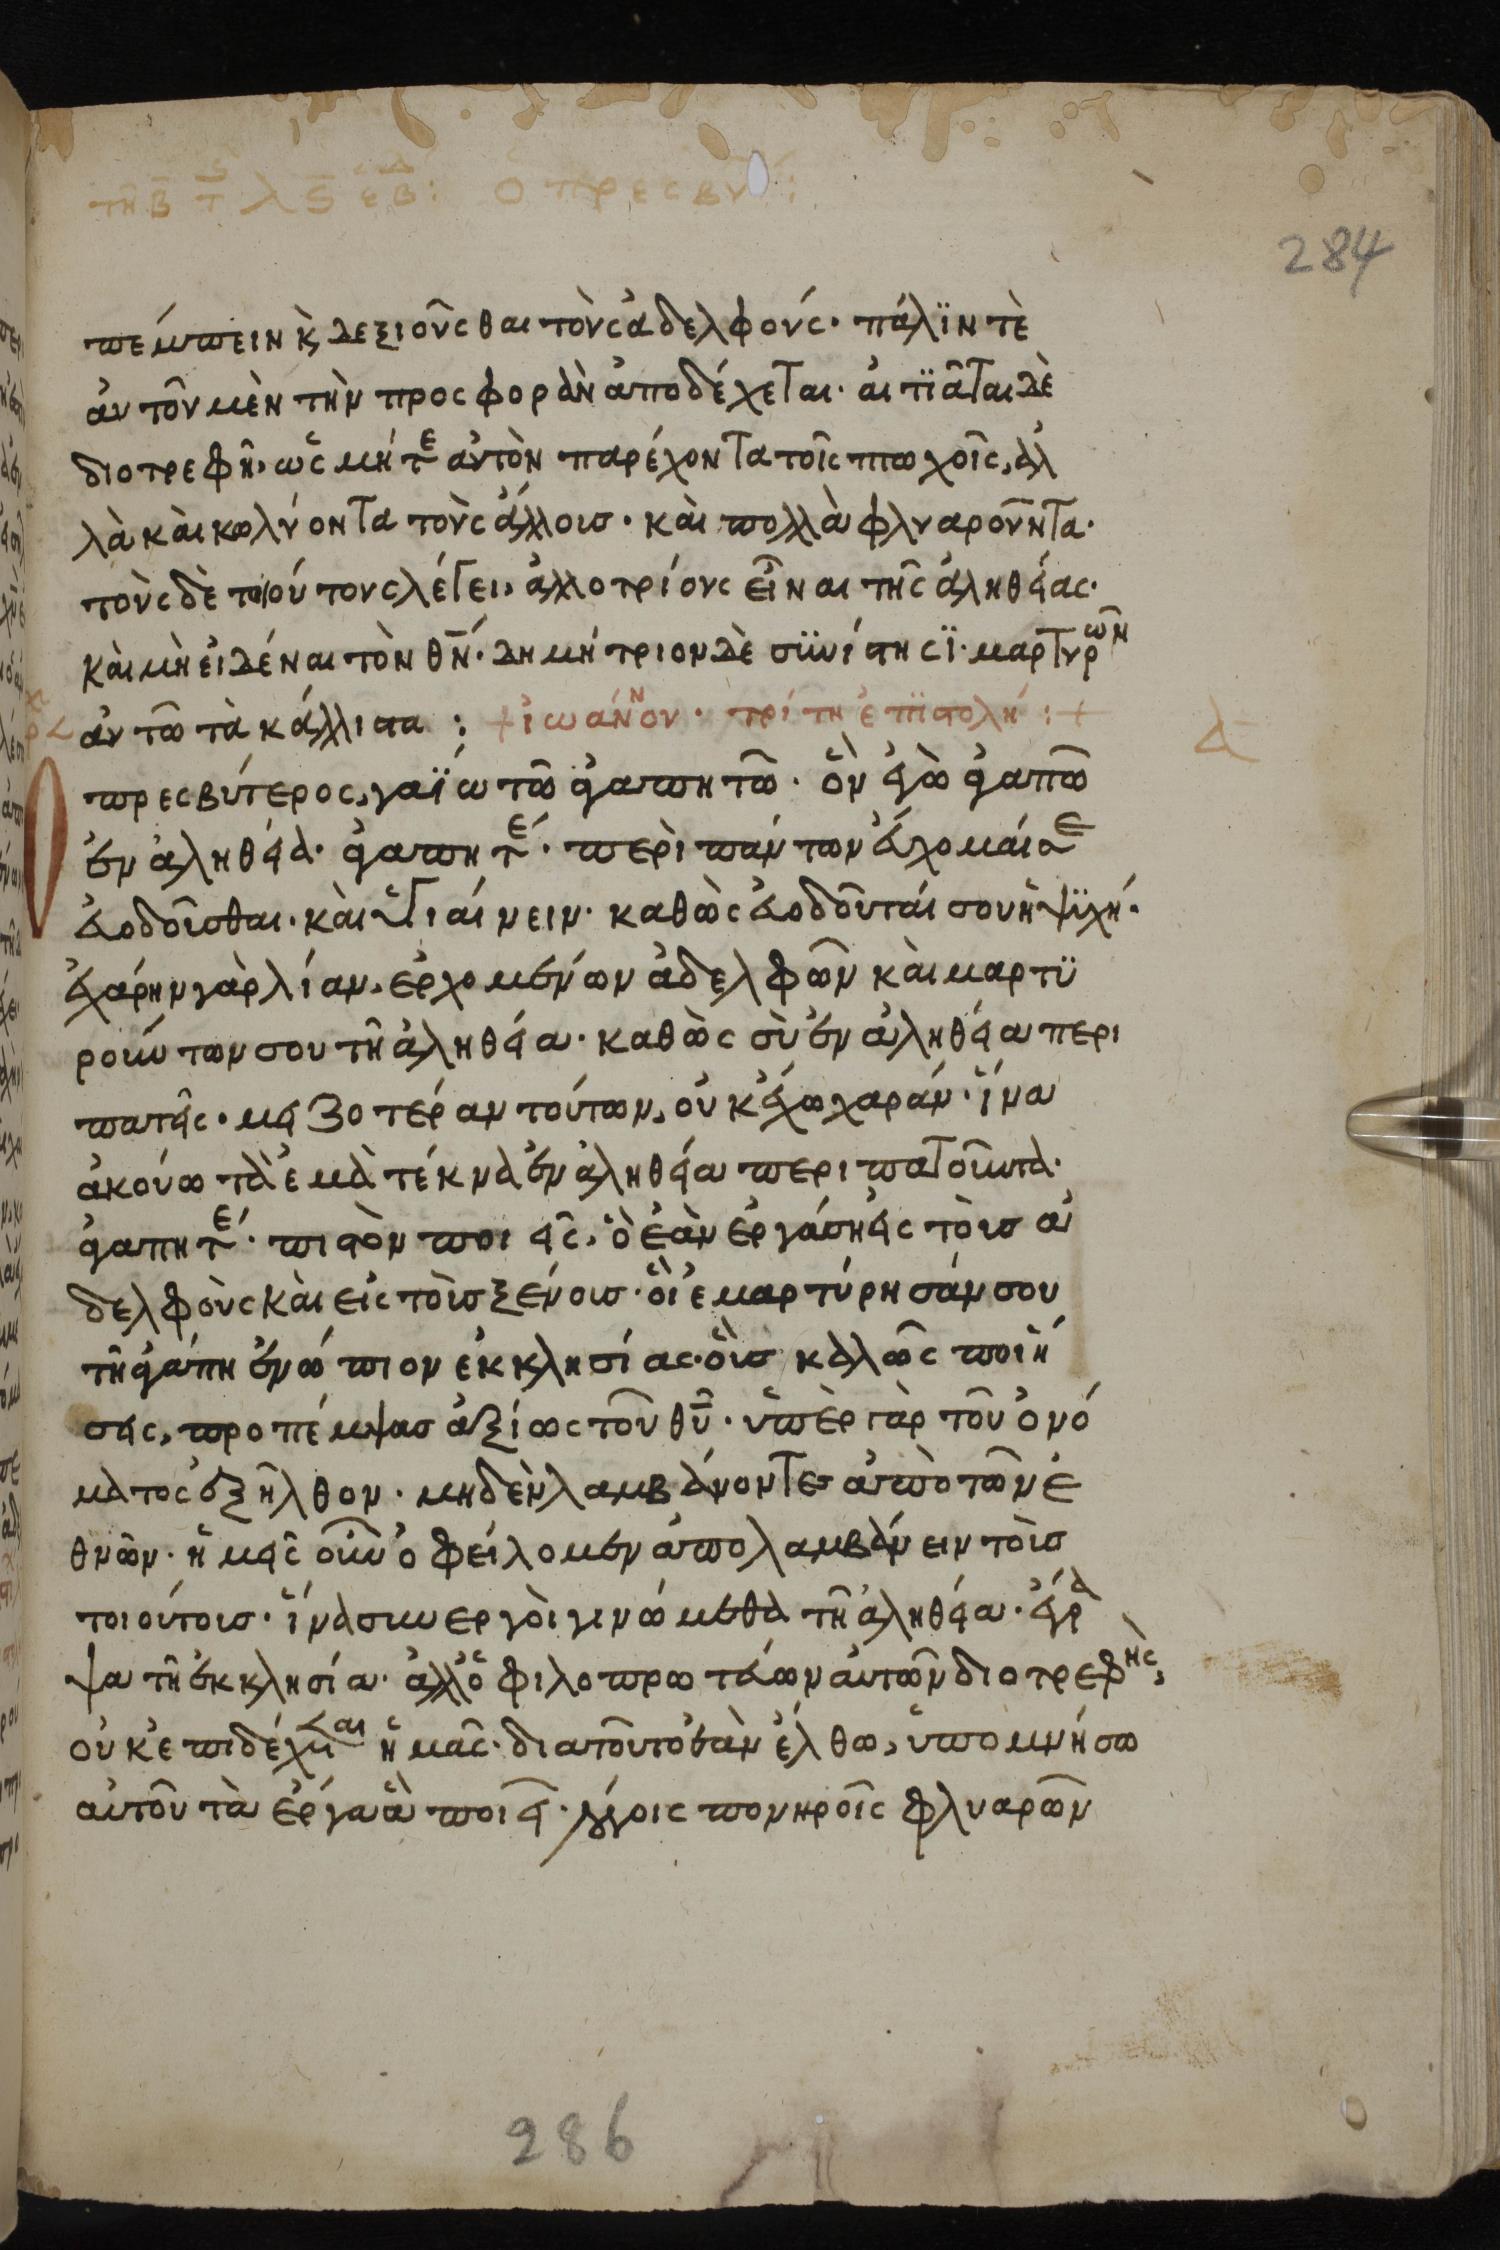 τῆ β τ λς εβδ: ὁ πρεσβύ:
284
πέμπειν κ δεξιοῦσθαι τοὺς ἀδελφούς· πάλϊν τὲ
αὐτοῦ μὲν τὴν προσφορὰν ἀποδέχεται· αἰτϊᾶται δὲ
διοτρεφῆ, ὡς μήτε αὐτὸν παρέχοντα τοῖς πτωχοῖς, ἀλ
λὰ καὶ κωλύοντα τοὺς ἄλλους· καὶ πολλὰ φλυαροῦντα·
τοὺς δὲ τοιούτους λέγει, ἀλλοτρίους εἶναι τῆς ἀληθείας·
καὶ μὴ εἰδέναι τὸν θν· δημήτριον δὲ συνίστησϊ· μαρτυρῶν
αὐτῶ τὰ κάλλιστα : + ἰωάννου· τρίτη ἐπϊστολή :+
Ο πρεσβύτερος, γαϊω τῶ ἀγαπητῶ· ὃν ἐγὼ ἀγαπῶ
ἐν ἀληθεία· ἀγαπητέ· περὶ πάντων εὔχομαί σε
εὐοδοῦσθαι· καὶ ὑγιαίνειν· καθὼς εὐοδοῦταί σου ἡ ψϋχή·
ἐχάρην γὰρ λίαν, ἐρχομένων ἀδελφῶν καὶ μαρτϋ
ρούντων σου τῆ ἀληθεία· καθὼς σὺ ἐν ἀληθεία περι
πατεῖς· μειζοτέραν τούτων, οὐκ ἔχω χαράν· ἵνα
ἀκούω τὰ ἐμὰ τέκνα ἐν ἀληθεία περιπατοῦντα·
ἀγαπητέ· πιστὸν ποιεῖς, ὃ ἐὰν ἐργάση εἰς τοὺς ἀ
δελφοὺς καὶ εἰς τοὺς ξένους· οἳ ἐμαρτύρησάν σου
τῆ ἀγάπη ἐνώπιον ἐκκλησίας· οὓς καλῶς ποιή
σεις, προπέμψας ἀξίως τοῦ θυ· ὑπὲρ γὰρ τοῦ ὀνό
ματος ἐξῆλθον· μηδὲν λαμβάνοντες ἀπὸ τῶν ἐ
θνῶν· ἡμεῖς οὖν ὀφείλομεν ἀπολαμβάνειν τοὺς
τοιούτους· ἵνα συνεργοὶ γινώμεθα τῆ ἀληθεία· ἔγρα
ψα τῆ ἐκκλησία· ἀλλ' ὁ φιλοπρωτεύων αὐτῶν διοτρεφὴς,
οὐκ ἐπιδέχεται ἡμᾶς· διατοῦτο ἐὰν ἔλθω, ὑπομνήσω
αὐτοῦ τὰ ἔργα ἃ ποιεῖ· λόγοις πονηροῖς φλυαρῶν
286